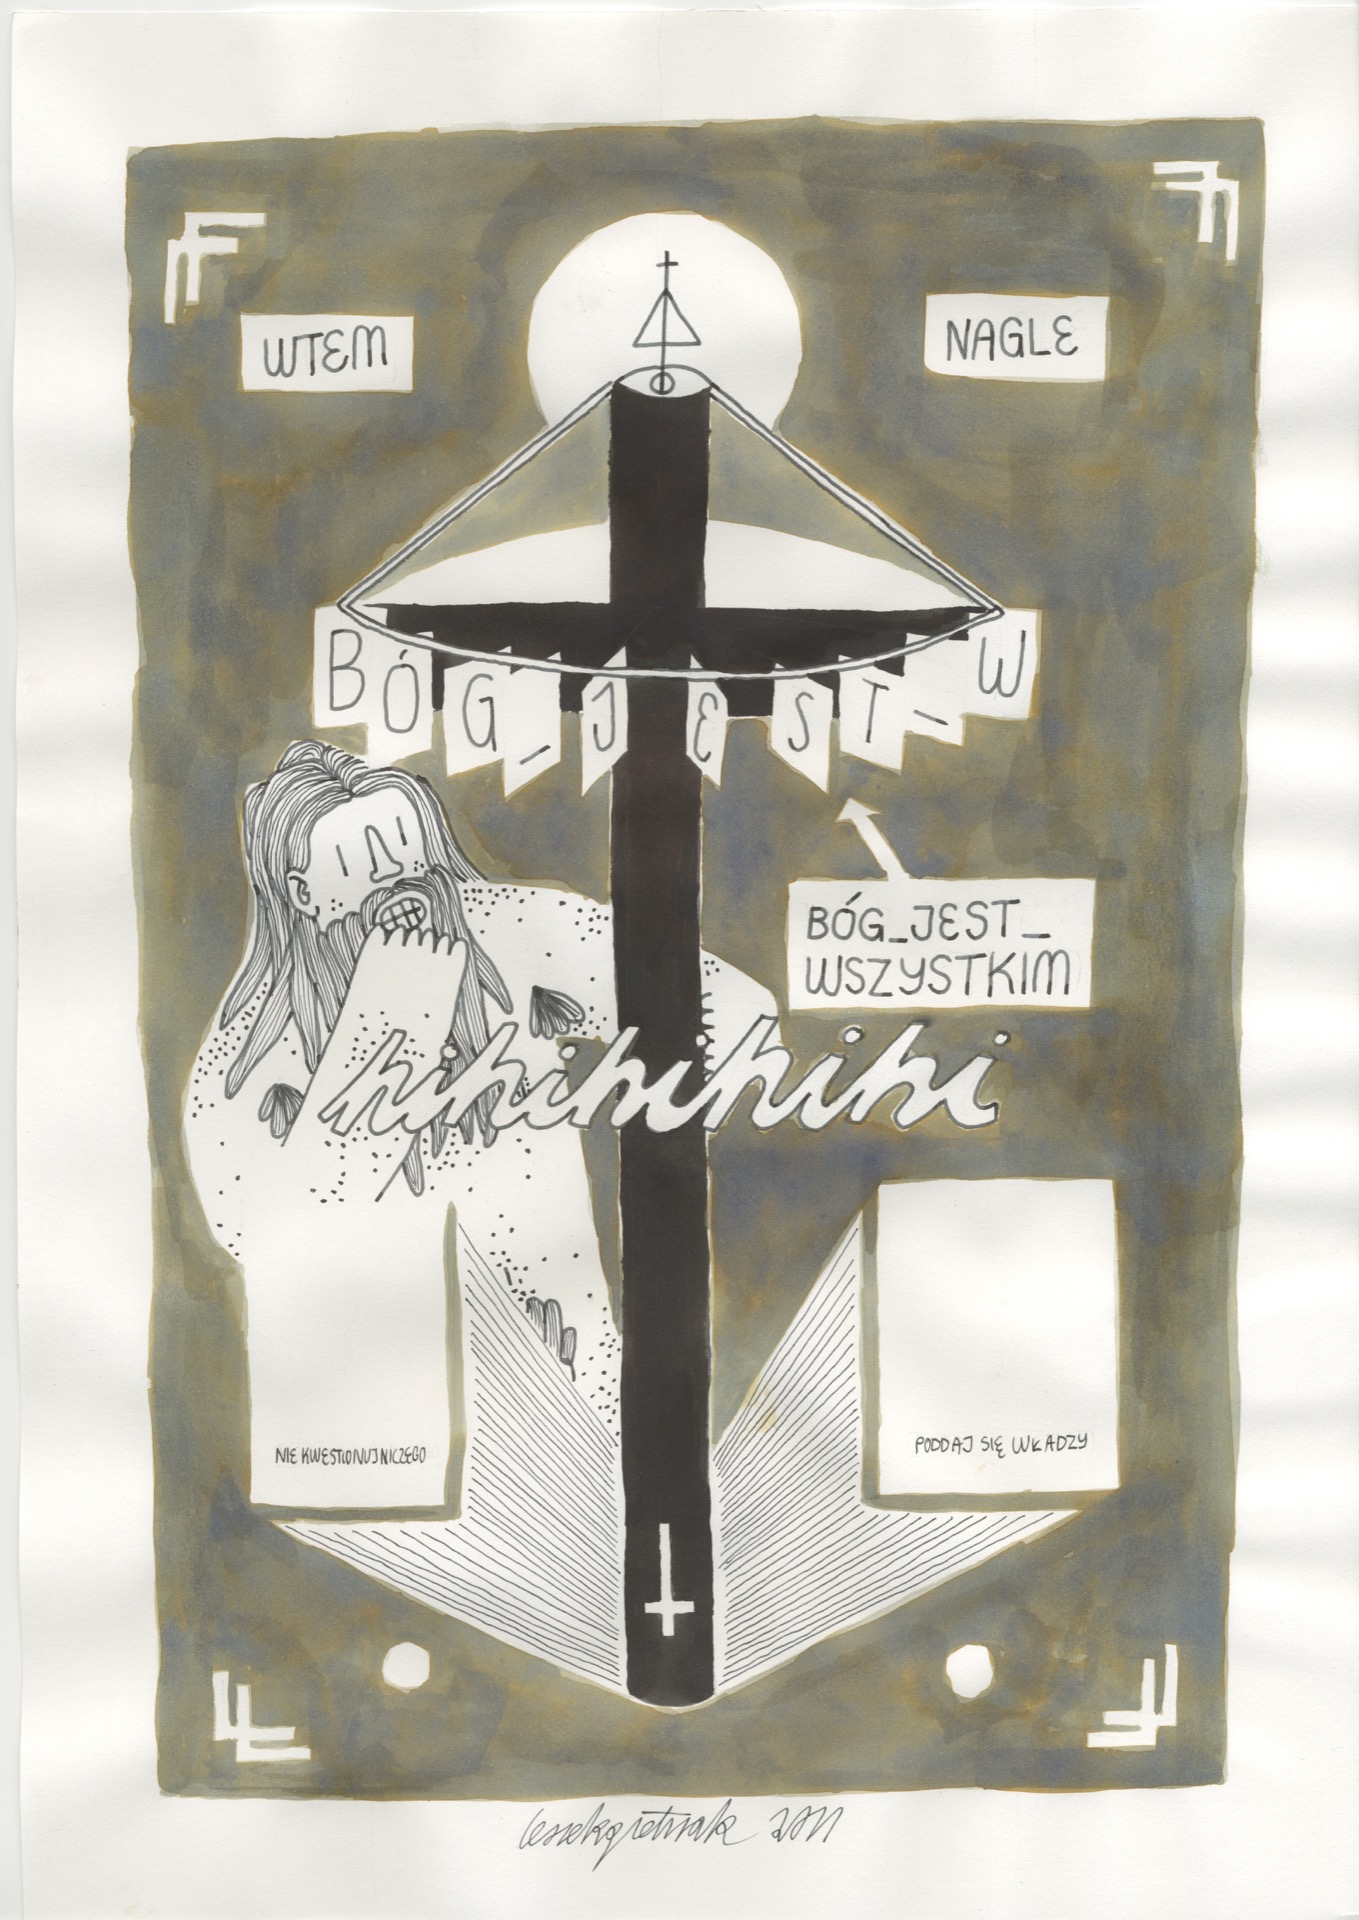 WTEM
NAGLE
BÓG_JEST_W
BÓG_JEST_
WSZYSTKIM
hihihihihihi
NIE KWESTIONUJ NICZEGO
PODDAJ SIĘ WŁADZY
2011